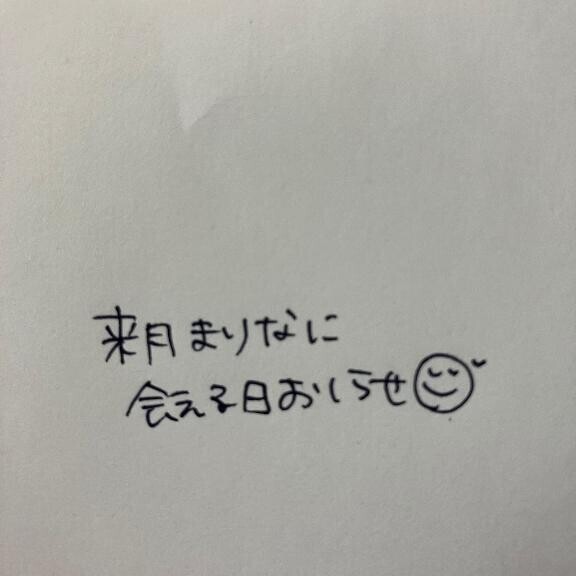 来月まりなに
会える日おしらせ